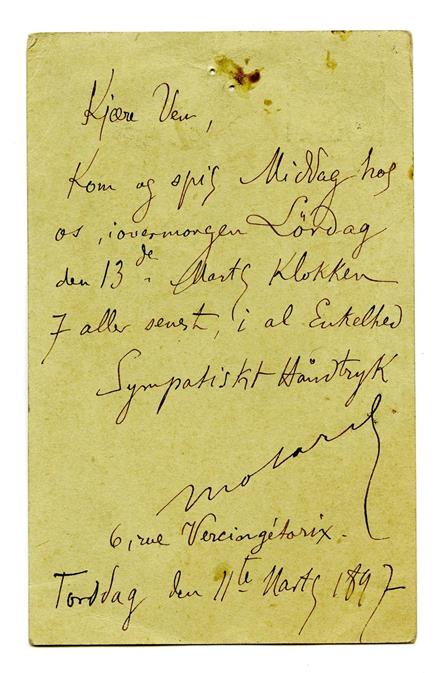 Kjære Ven,
Kom og spis Middag hos
os, iovermorgen Lördag
den 13de. Marts Klokken
7 aller senest, i al Enkelhed
Sympatiskt Håndtryk
Molard
6, rue Vercingétorix.
Torsdag den 11te Marts 1897